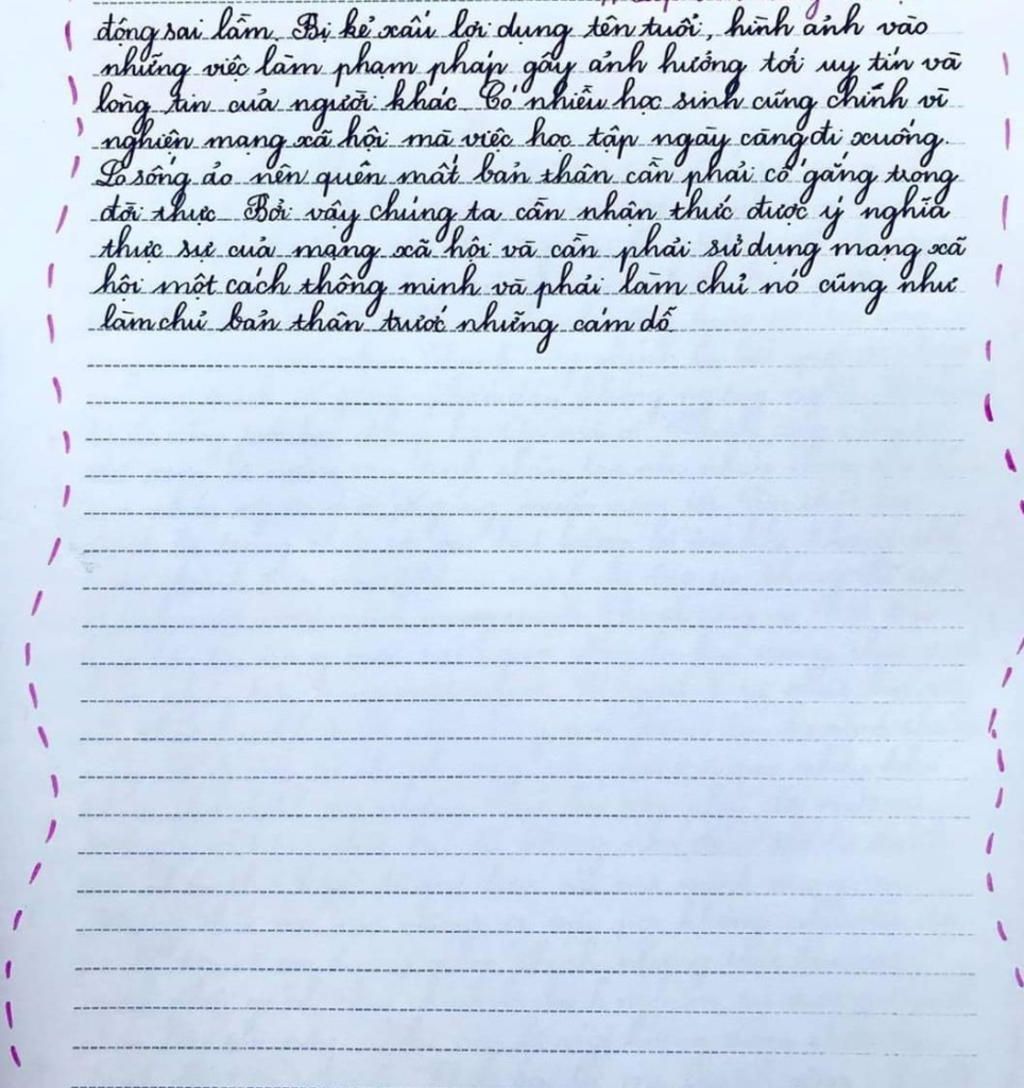 động sai lầm. Bị kẻ xấu lợi dụng tên tuổi, hình ảnh vào
những việc làm phạm pháp gây ảnh hưởng tới uy tín và
lòng tin của người khác. Có nhiều học sinh cũng chính vì
nghiện mạng xã hội mà việc học tập ngày càng đi xuống.
Lo sống ảo nên quên mất bản thân cần phải cố gắng trong
đời thực. Bởi vậy chúng ta cần nhận thức được ý nghĩa
thực sự của mạng xã hội và cần phải sử dụng mạng xã
hội một cách thông minh và phải làm chủ nó cũng như
làm chủ bản thân trước những cám dỗ